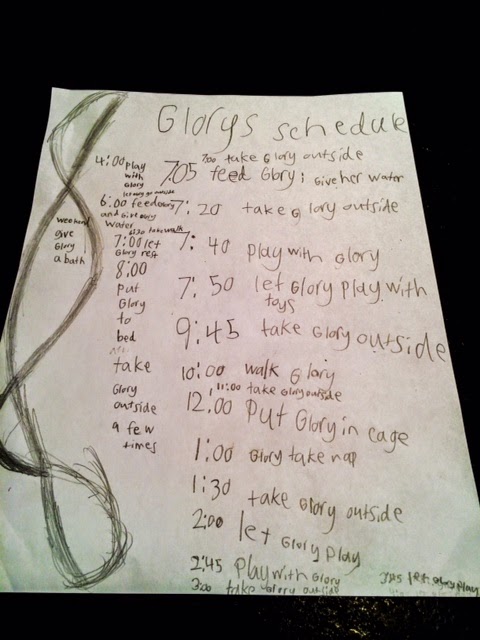 Glorys schedule
7:00 take Glory outside
7:05 feed Glory; Give her water
7:20 take Glory outside
7:40 play with Glory
7:50 let Glory play with
toys
9:45 take Glory outside
10:00 walk Glory
11:00 take Glory outside
12:00 Put Glory in cage
1:00 Glory take nap
1:30 take Glory outside
2:00 let Glory play
2:45 Play with Glory
3:00 take Glory outside
3:15 let Glory play
4:00 play
with
Glory
let Glory go outside
6:00 feed Glory
and Give Glory
water
6:30 take walk
7:00 let
Glory rest
8:00
put
Glory
to
bed
take
Glory
outside
a few
times
weekend
give
Glory
a bath